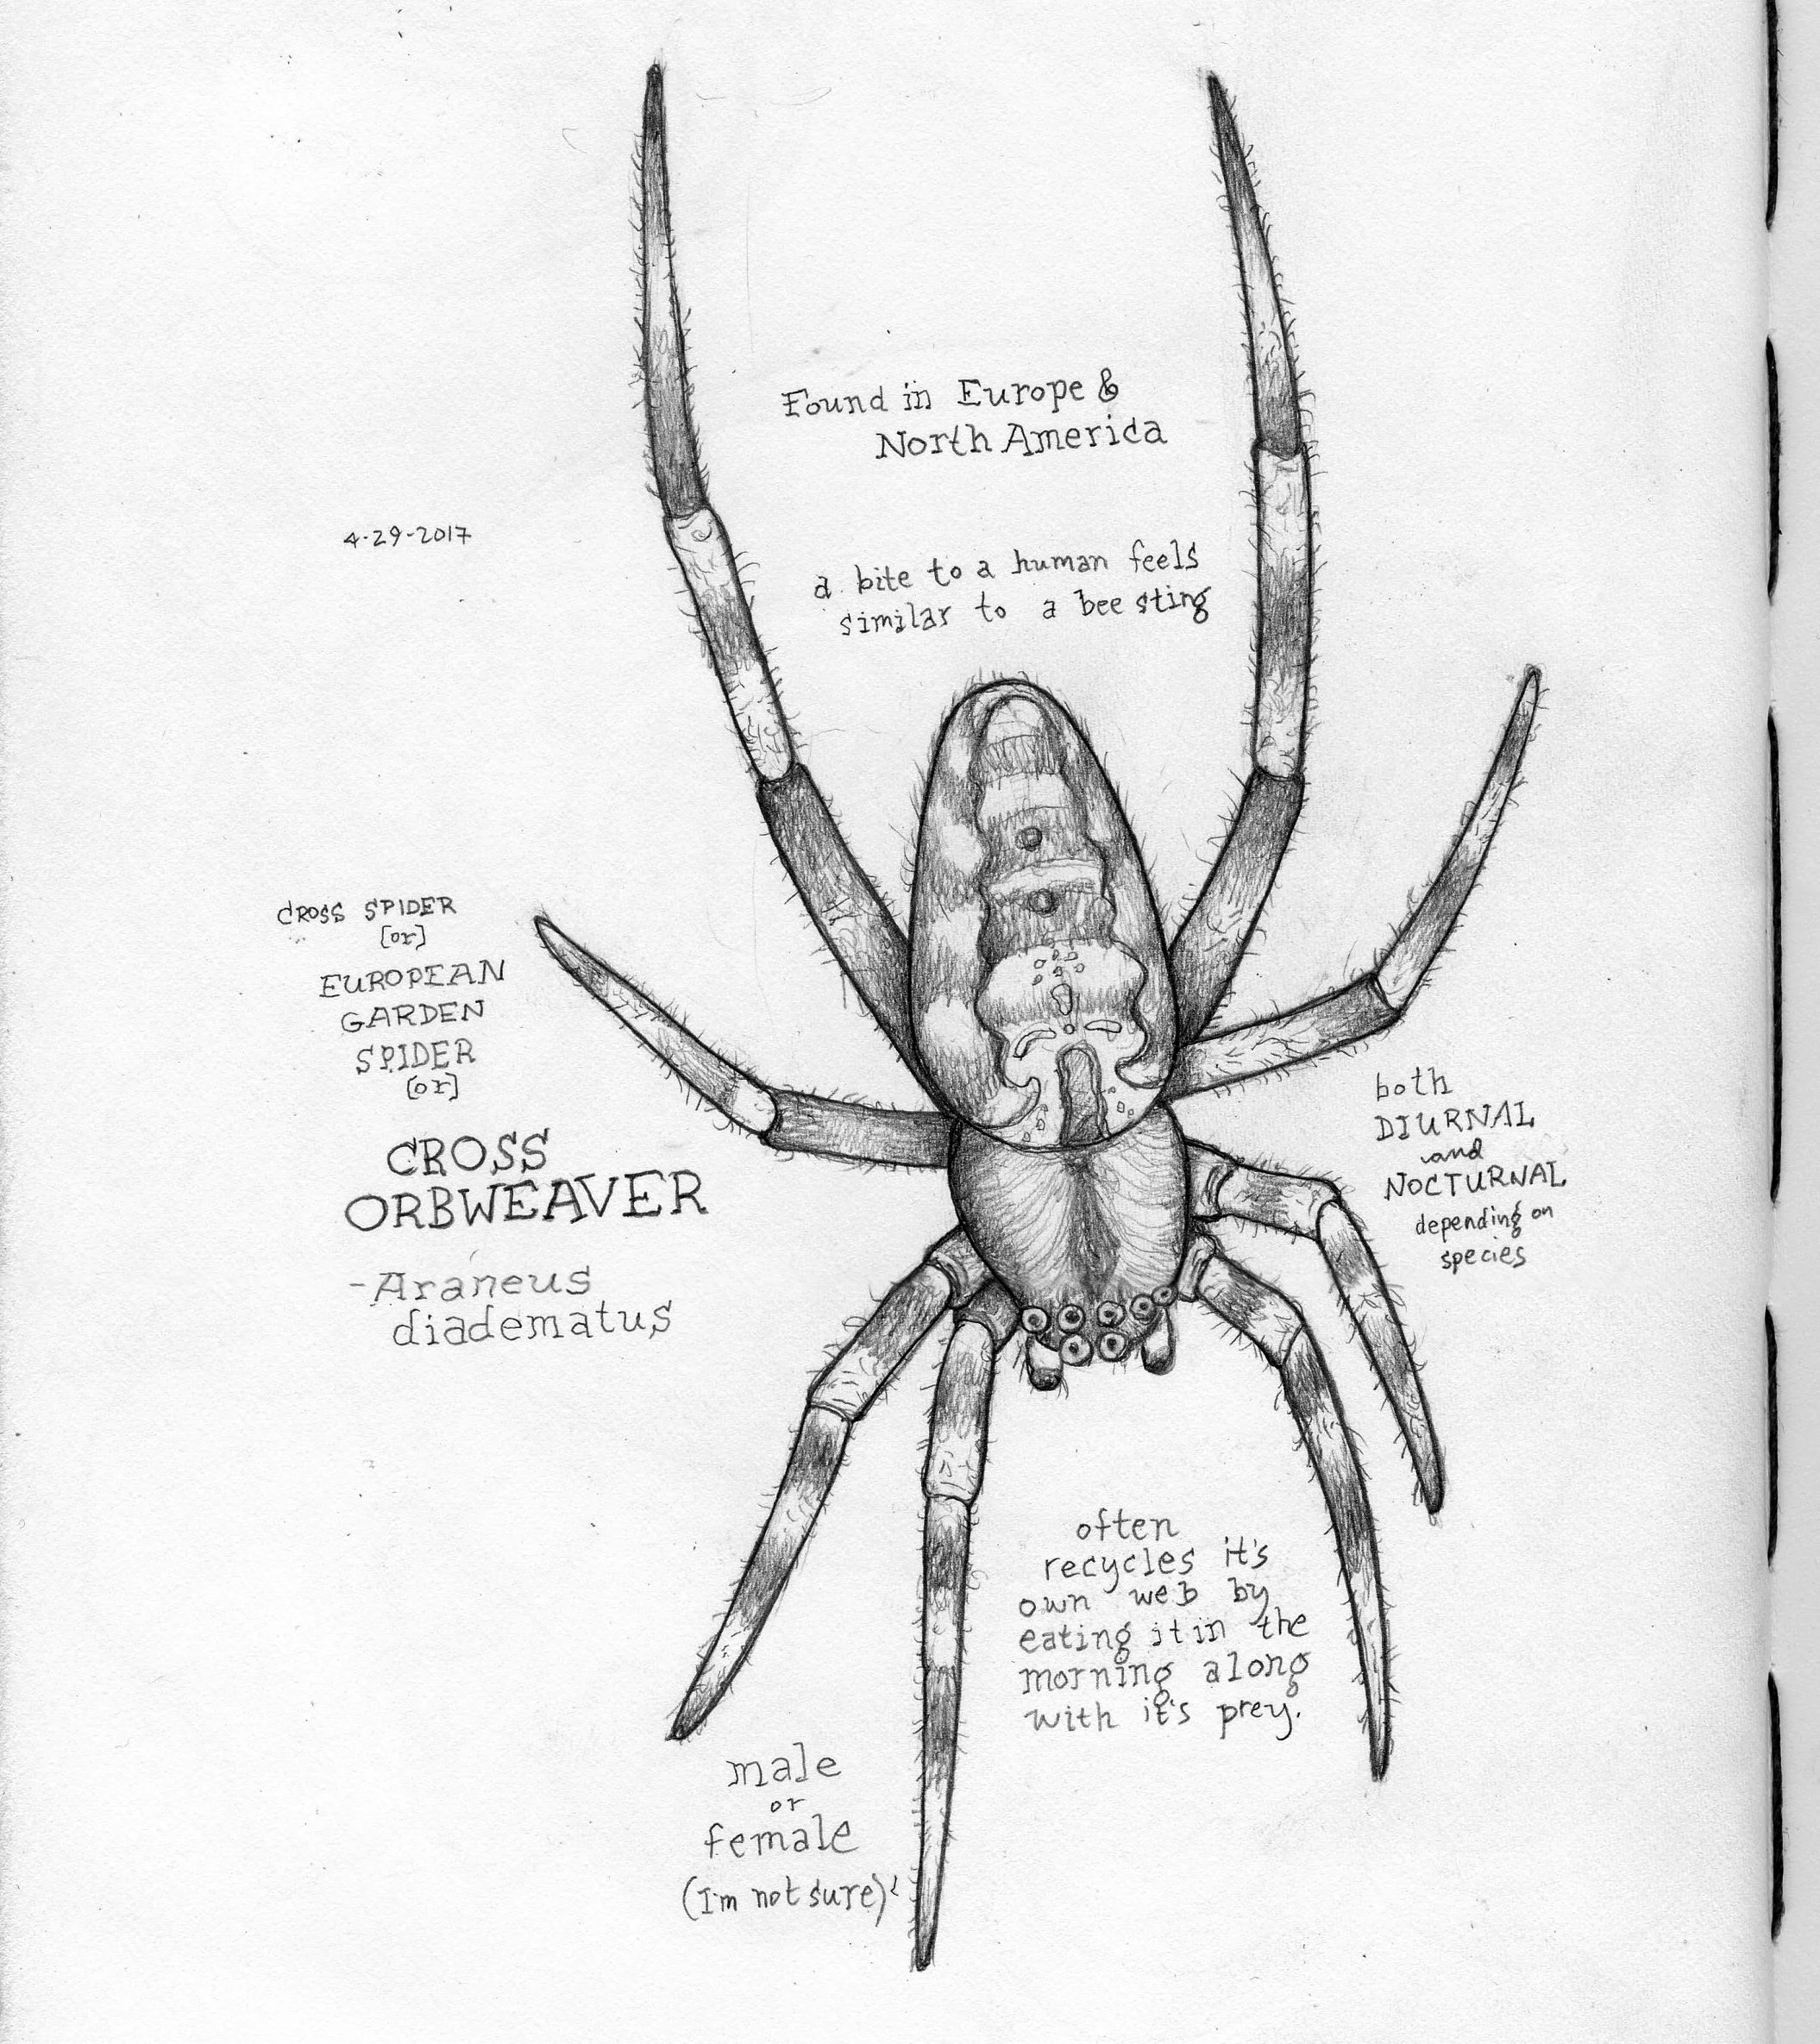 Found in Europe &
North America
4-29-2017
a bite to a human feels
similar to a bee sting
CROSS SPIDER
[or]
EUROPEAN
GARDEN
SPIDER
[or]
CROSS
ORBWEAVER
-Araneus
diadematus
both
DIURNAL
and
NOCTURNAL
depending on
species
often
recycles it's
own web by
eating it in the
morning along
with it's prey.
male
or
female
(I'm not sure)